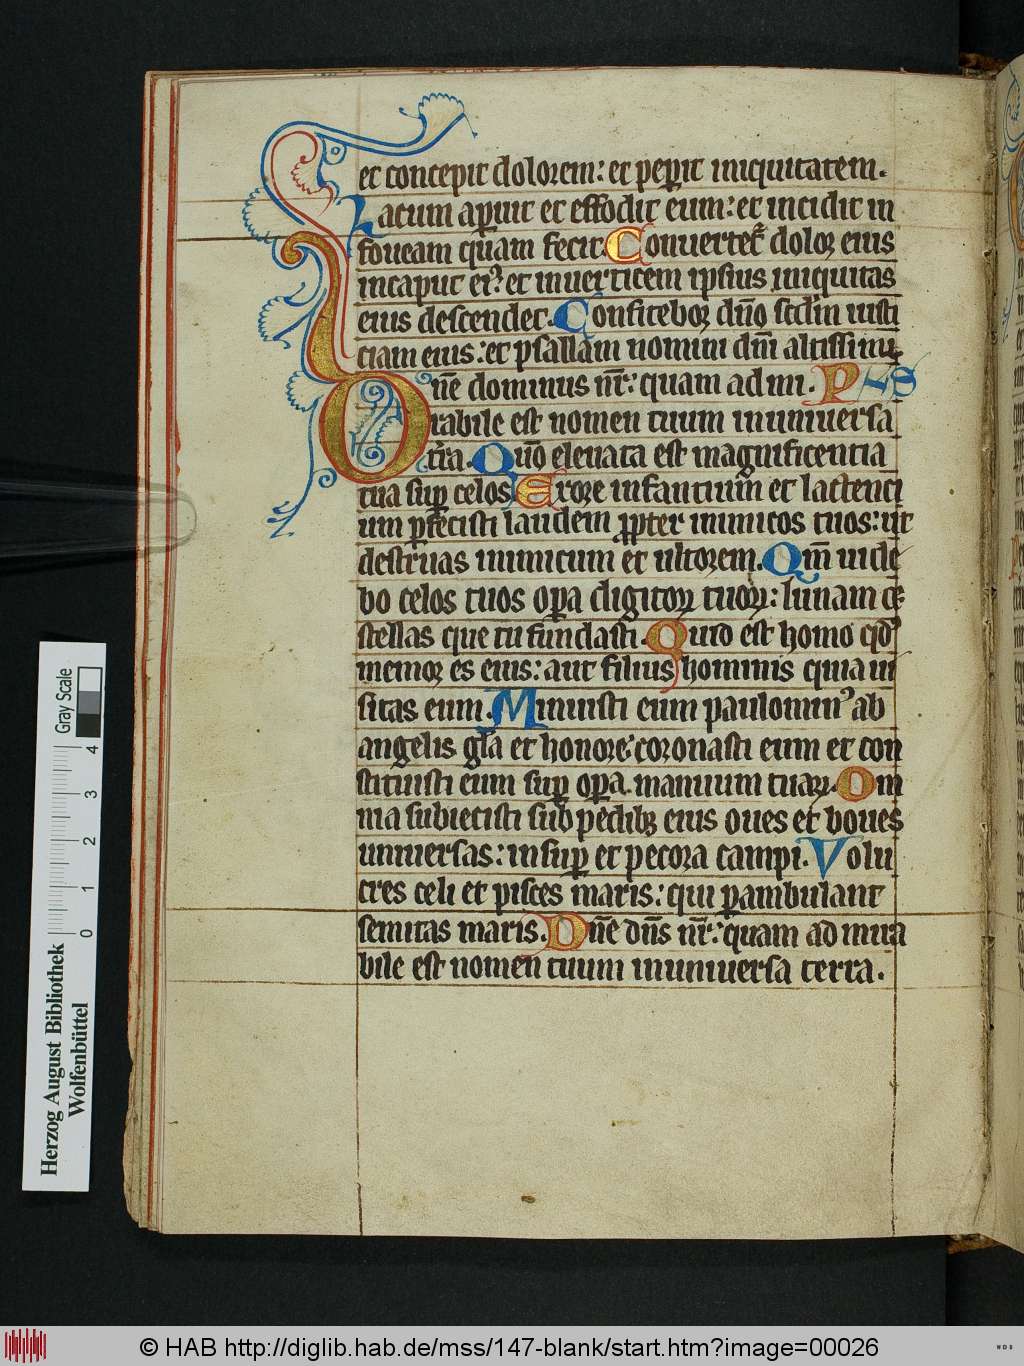 et concepit dolorem: et peperit iniquitatem.
Lacum aperuit et effodit eum: et incidit in
foueam quam fecit. Conuertet᷑ dolor eius
in caput eiꝰ: et in uerticem ipsius iniquitas
eius descendet. Confitebor dn̄o sc̄dm iusti
ciam eius: et psallam nomini dn̄i altissimi.
Dn̄e dominus nr̄: quam admi. PS
rabile est nomen tuum in uniuersa
t̄ra. Qūo eleuata est magnificentia
tua sup̱ celos. Ex ore infantium et lactenti
um ꝑfecisti laudem ꝓpter inimicos tuos: ut
destruas inimicum et ultorem. Qm̄ uide
bo celos tuos oꝑa digitoꝝ tuoꝝ: lunam et
stellas que tu fundasti. Quid est homo qd̕
memor es eius: aut filius hominis quia ui
sitas eum. Minuisti eum paulominꝰ ab
angelis gl̄a et honore coronasti eum et con
stituisti eum suꝑ oꝑa manuum tuaꝝ. Om
nia subiecisti sub pedibꝫ eius oues et boues
uniuersas: insuꝑ et pecora campi. Volu
cres celi et pisces maris: qui ꝑambulant
semitas maris. Dn̄e dn̄s nr̄: quam ad mira
bile est nomen tuum in uniuersa terra.
Herzog August Bibliothek
Wolfenbüttel
0 1 2 3 4
Gray Scale
© HAB http://diglib.hab.de/mss/147-blank/start.htm?image=00026